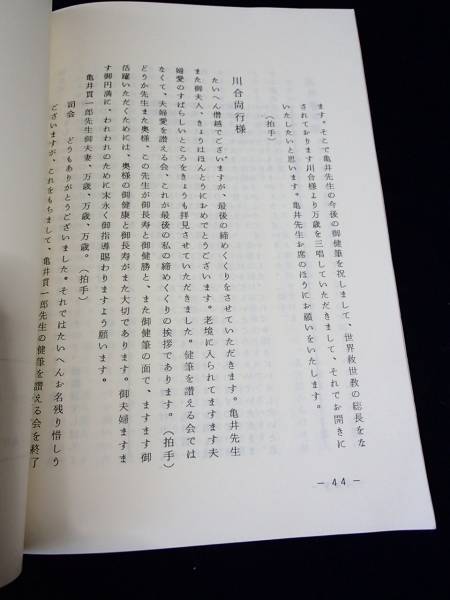 ます。そこで亀井先生の今後の御健筆を祝しまして、世界救世教の総長をな
されております川合様より万歳を三唱していただきまして、それでお開きに
いたしたいと思います。亀井先生お席のほうにお願いをいたします。
（拍手）
川合尚行様
たいへん僭越でございますが、最後の締めくくりをさせていただきます。亀井先生
また御夫人、きょうはほんとうにおめでとうございます。老境に入られてますます夫
婦愛のすばらしいところをきょうも拝見させていただきました。健筆を讃える会では
なくて、夫婦愛を讃える会、これが最後の私の締めくくりの挨拶であります。（拍手）
どうか先生また奥様、この先生が御長寿と御健勝と、また御健筆の面で、ますます御
活躍いただくためには、奥様の御健康と御長寿がまた大切であります。御夫婦ますま
す御円満に、われわれのために末永く御指導賜わりますよう願います。
亀井貫一郎先生御夫妻、万歳、万歳、万歳。（拍手）
司会　どうもありがとうございました。それではたいへんお名残り惜しう
ございますが、これをもちまして、亀井貫一郎先生の健筆を讃える会を終了
－44－